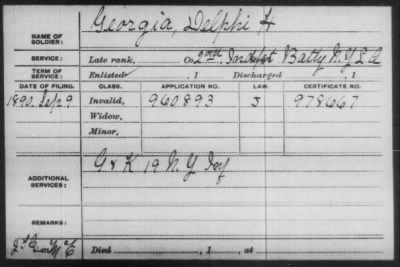 Georgia, Delphi H
NAME OF SOLDIER:
SERVICE: Late rank, Co. 2nd. Indpt Batty N.Y.L.A
TERM OF SERVICE: Enlisted , 1 Discharged , 1
DATE OF FILING. CLASS. APPLICATION NO. LAW. CERTIFICATE NO.
1890. Sep 29 Invalid, 960893 J 978667
Widow,
Minor,
ADDITIONAL SERVICES: G & K 19 N.Y Inf
REMARKS:
Died , 1 , at